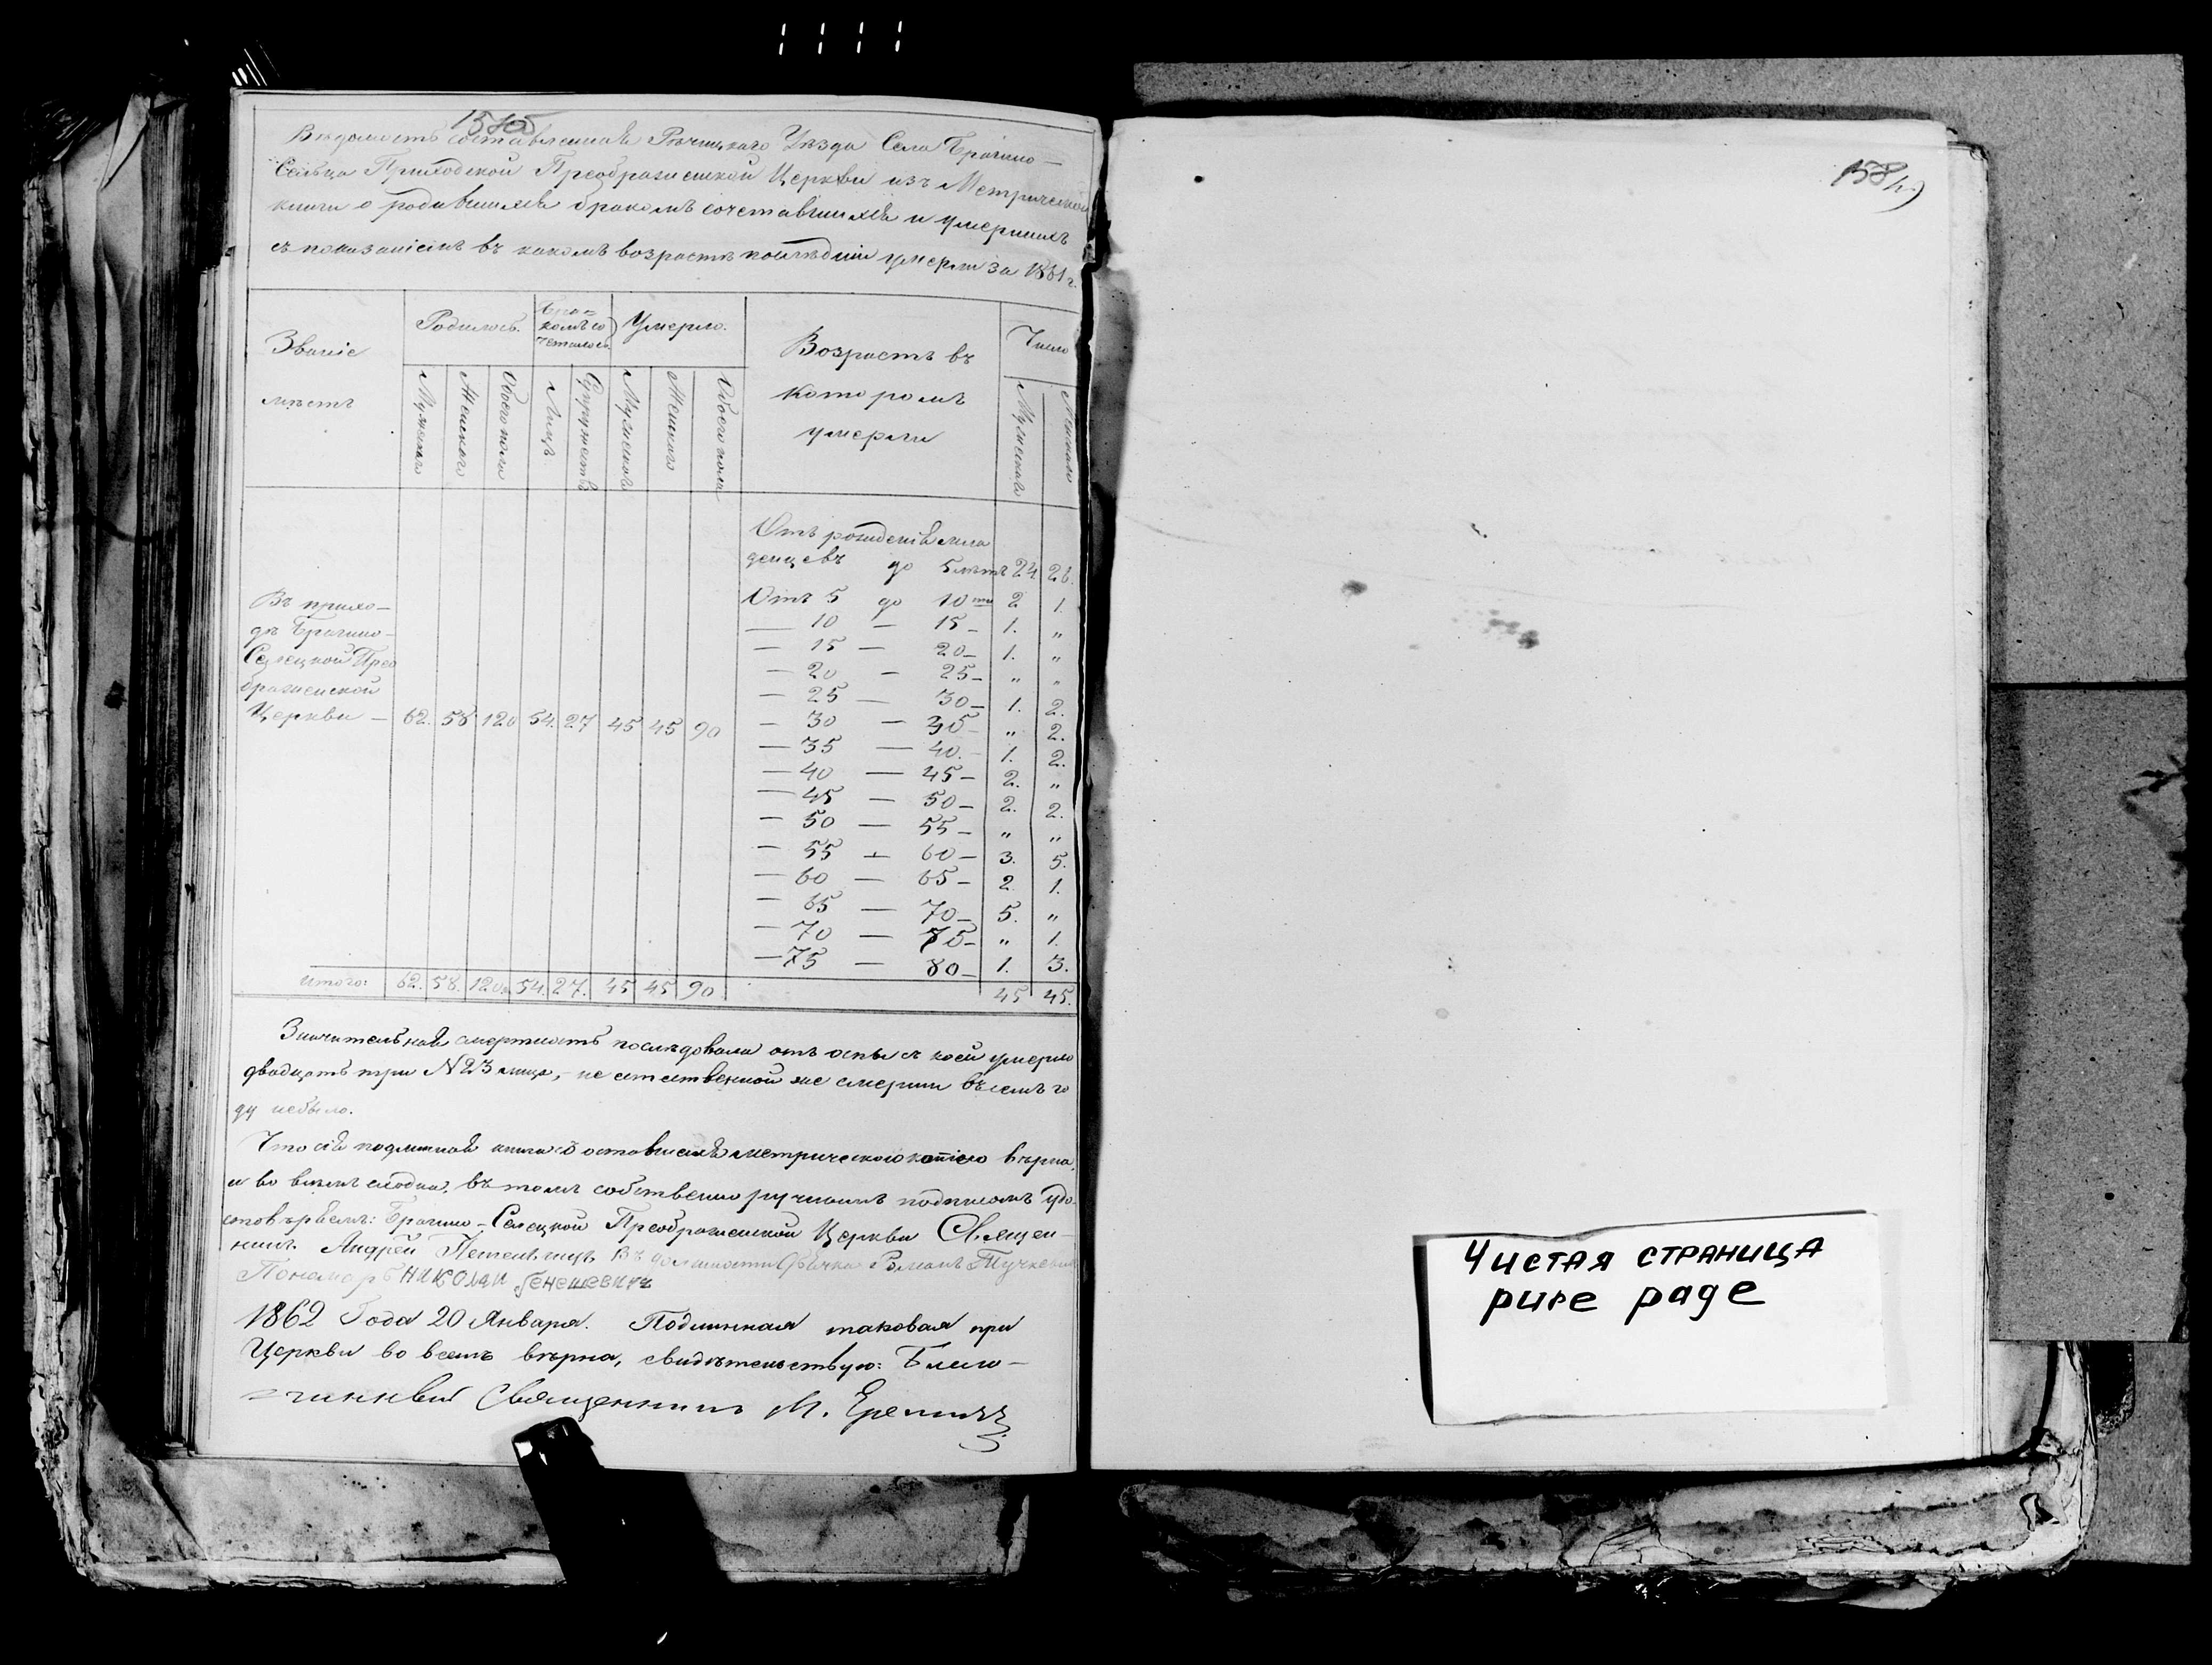 Вѣдомость составленная Рѣчицкаго Уѣзда Села Брагино-
Сельца Приходской Преображенской Церкви изъ Метрической
книги о родившихся бракомъ сочетавшихся и умершихъ
съ показаніемъ въ какомъ возрастѣ послѣдніи умерли за 1861 г.
Званіе мѣстъ
Родилось.
Бра-
комъ со
четалось
Умерло.
Возрастъ въ
которомъ
умерли
Число
Мужескаго
Женскаго
Обоего пола
Лицъ
Супружествъ
Мужескаго
Женскаго
Обоего пола
Мужескаго
Женскаго
Отъ рожденія мла
денцевъ до 5 лѣтъ 24 26.
Отъ 5 до 10 ти 2 1.
— 10 — 15 — 1. „
— 15 — 20 — 1. „
— 20 — 25 — „ „
— 25 — 30 — 1. 2.
— 30 — 35 — „ 2.
— 35 — 40. — 1. 2.
— 40 — 45 — 2. „
— 45 — 50 — 2. 2.
— 50 — 55 — „ „
— 55 — 60 — 3. 5.
— 60 — 65 — 2. 1.
— 65 — 70 — 5. „
— 70 — 75 — „ 1.
— 75 — 80 — 1. 3.
Въ прихо-
дѣ Брагино-
Селецкой Прео
браженской
Церкви — 62. 58 120 54. 27 45 45 90
Итого: 62. 58. 120. 54. 27. 45 45 90 45 45.
Значительная смертность послѣдовала отъ оспы съ коей умерло
двадцать три N 23 лица, — не естественной же смерти въ семъ го
ду небыло.
Что сія подлинная книга съ оставшеюся метрическою копіею вѣрна,
и во всемъ сходна, въ томъ собственно ручнымъ подписомъ удо
стовѣряемъ: Брагино-Селецкой Преображенской Церкви Священ-
никъ Андрей Въ должности Дьячка Романъ Тучкевич
Пономарь Николаи
1862 Года 20 Января. Подлинная таковая при
Церкви во всемъ вѣрна, свидѣтельствую: Благо-
=чинный Священникъ М. Еремичъ
158
Чистая страница
pure page